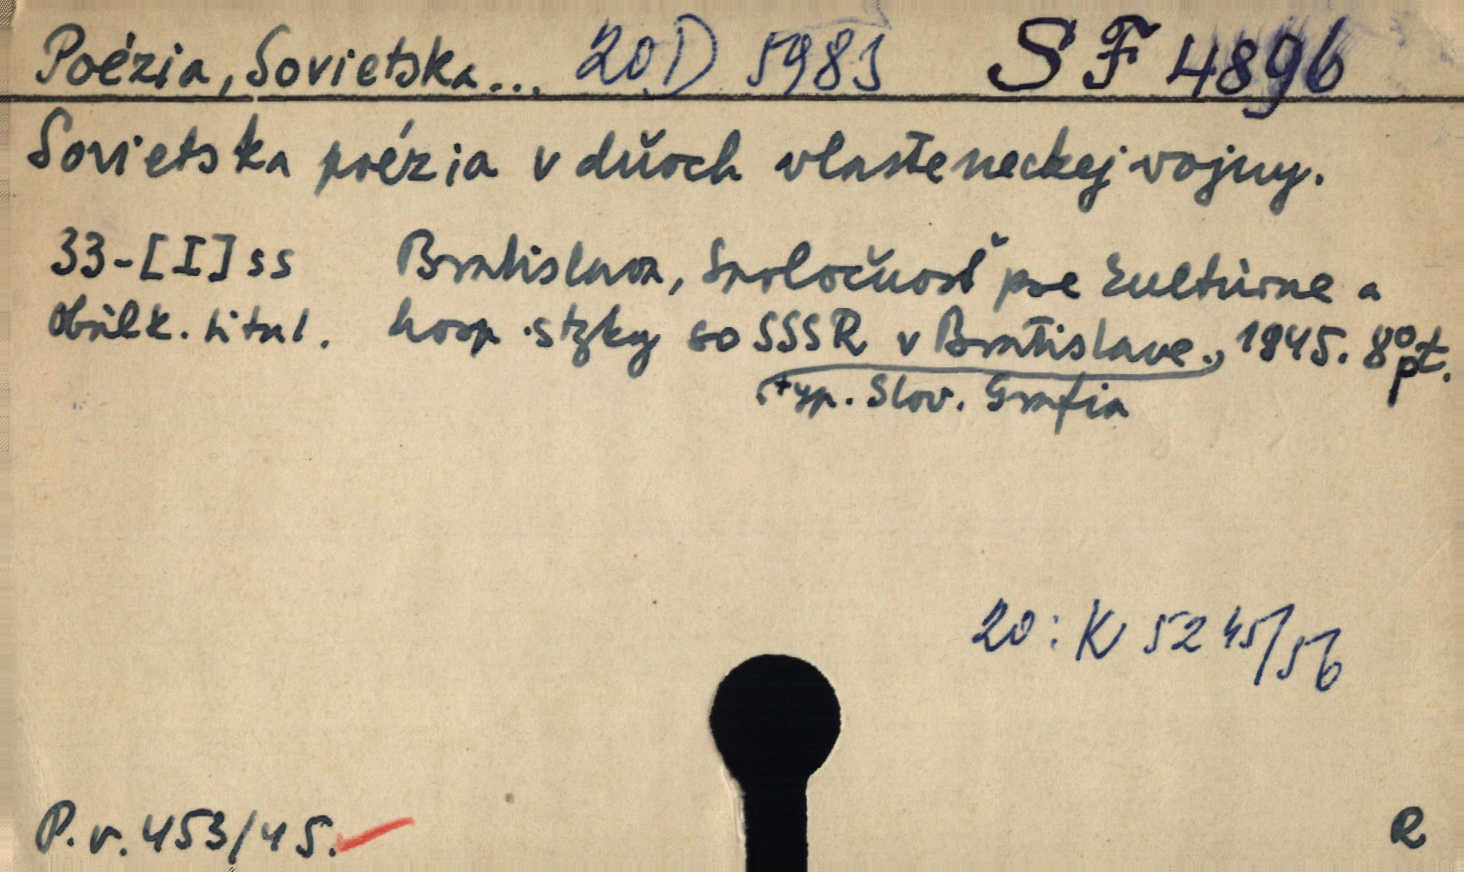 Poézia, Sovietska... 20.D 5983 SF 4896
Sovietska poézia v dňoch vlasteneckej vojny.
33-[I] ss Bratislava, Spoločnosť pre kultúrne a
Obálk. titul. hosp. styky so SSSR v Bratislave., 1945. 8° pt.
(typ. Slov. Grafia
20: K 5245/56
P.v. 453/45.
R